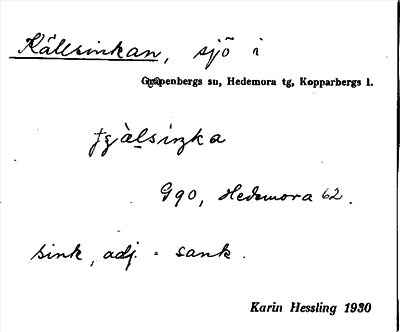 Källsinkan, sjö i
Garpenbergs sn, Hedemora tg, Kopparbergs l.
Hedemora 62.
sink, adj. = sank.
Karin Hessling 1930